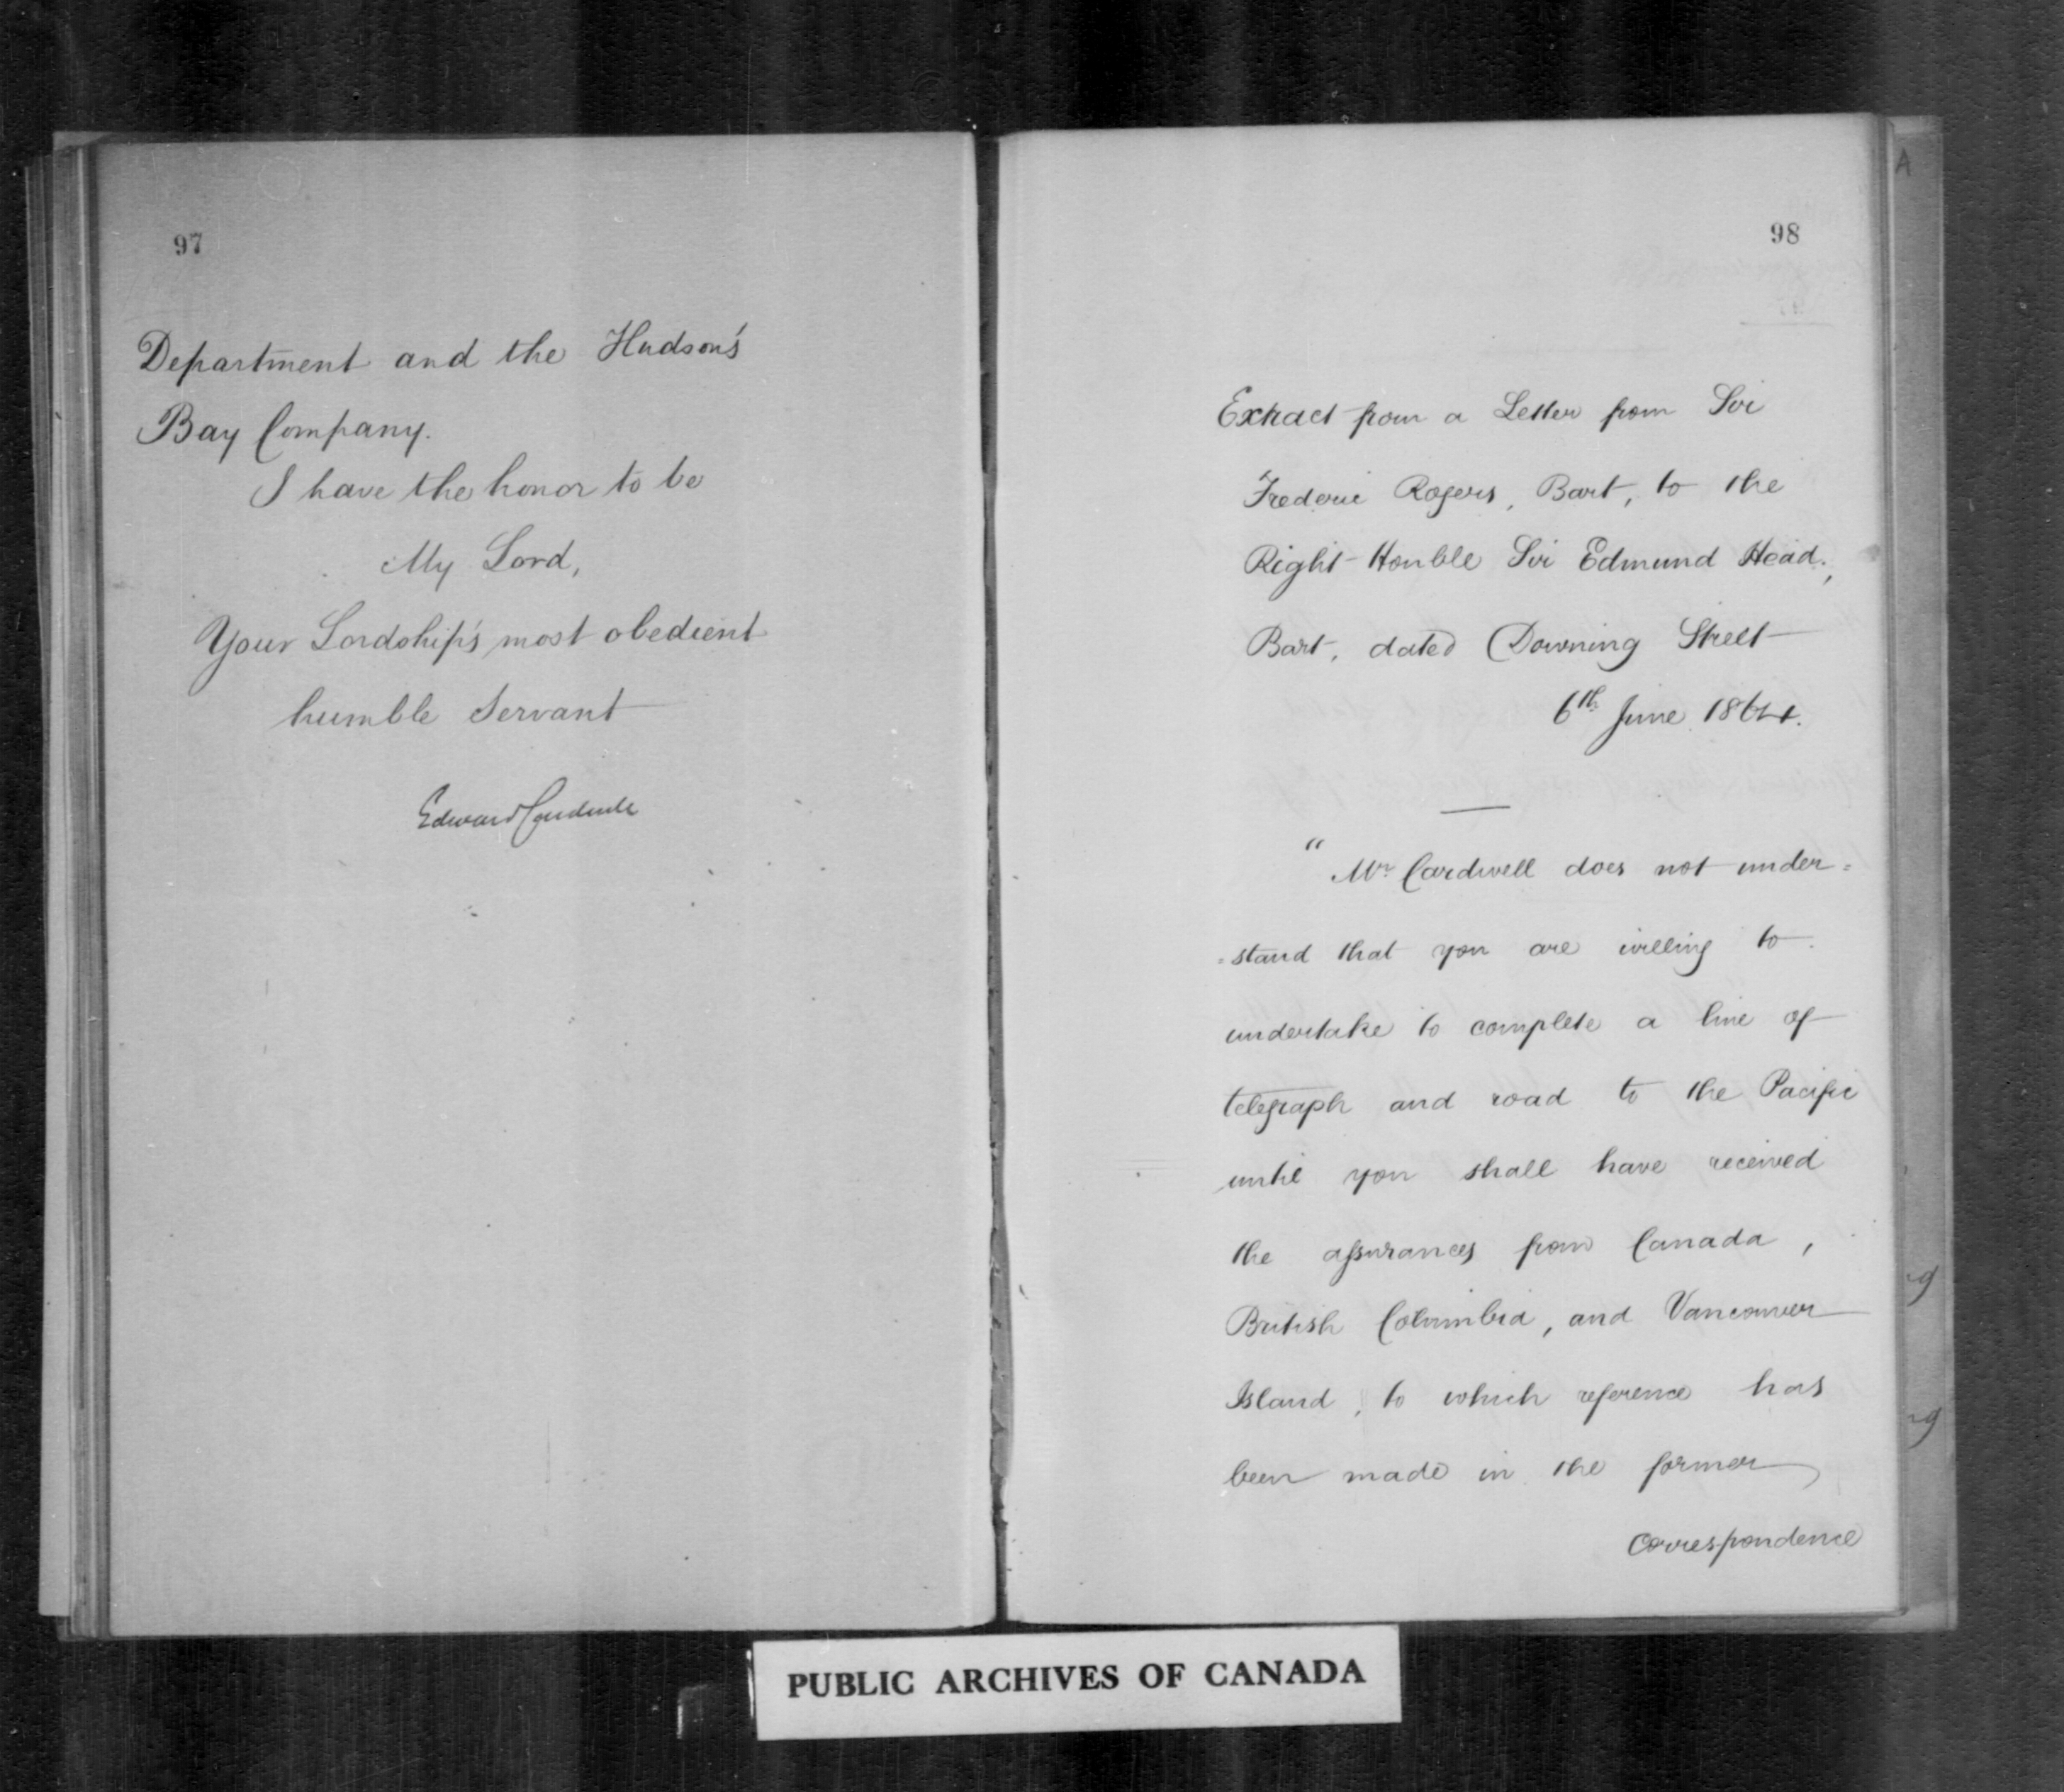 97
Department and the Hudson's
Bay Company.
I have the honor to be
My Lord,
Your Lordship's most obedient
humble Servant
Edward Cardwell
98
Extract from a Letter from Sir
Frederic Rogers, Bart, to the
Right Honble Sir Edmund Head.,
Bart, dated Downing Street
6th June 1864.
"Mr. Cardwell does not under=
=stand that you are willing to
undertake to complete a line of
telegraph and road to the Pacific
until you shall have received
the assurances from Canada,
British Columbia, and Vancouver
Island, to which reference has
been made in the former
correspondence
A
g
g
PUBLIC ARCHIVES OF CANADA